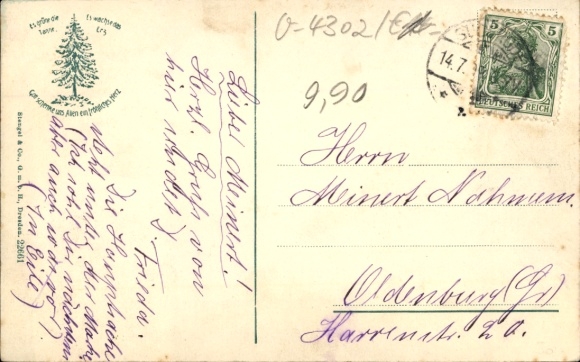 Es grüne die Tanne,
Es wachse das Erz
Gott schenke uns Allen ein fröhliches Herz
Stengel & Co., G. m. b. H., Dresden. 22661
Lieber Meinert!
Herzl. Gruß von
hier sendet
Frieda.
Die Hauptsache
unter der Marke
aber auch
(In Eile)
14.7.
5 5
DEUTSCHES REICH
9,90
Herrn
Meinert Nahmens.
Oldenburg (Gr)
Harrenstr. 2a.